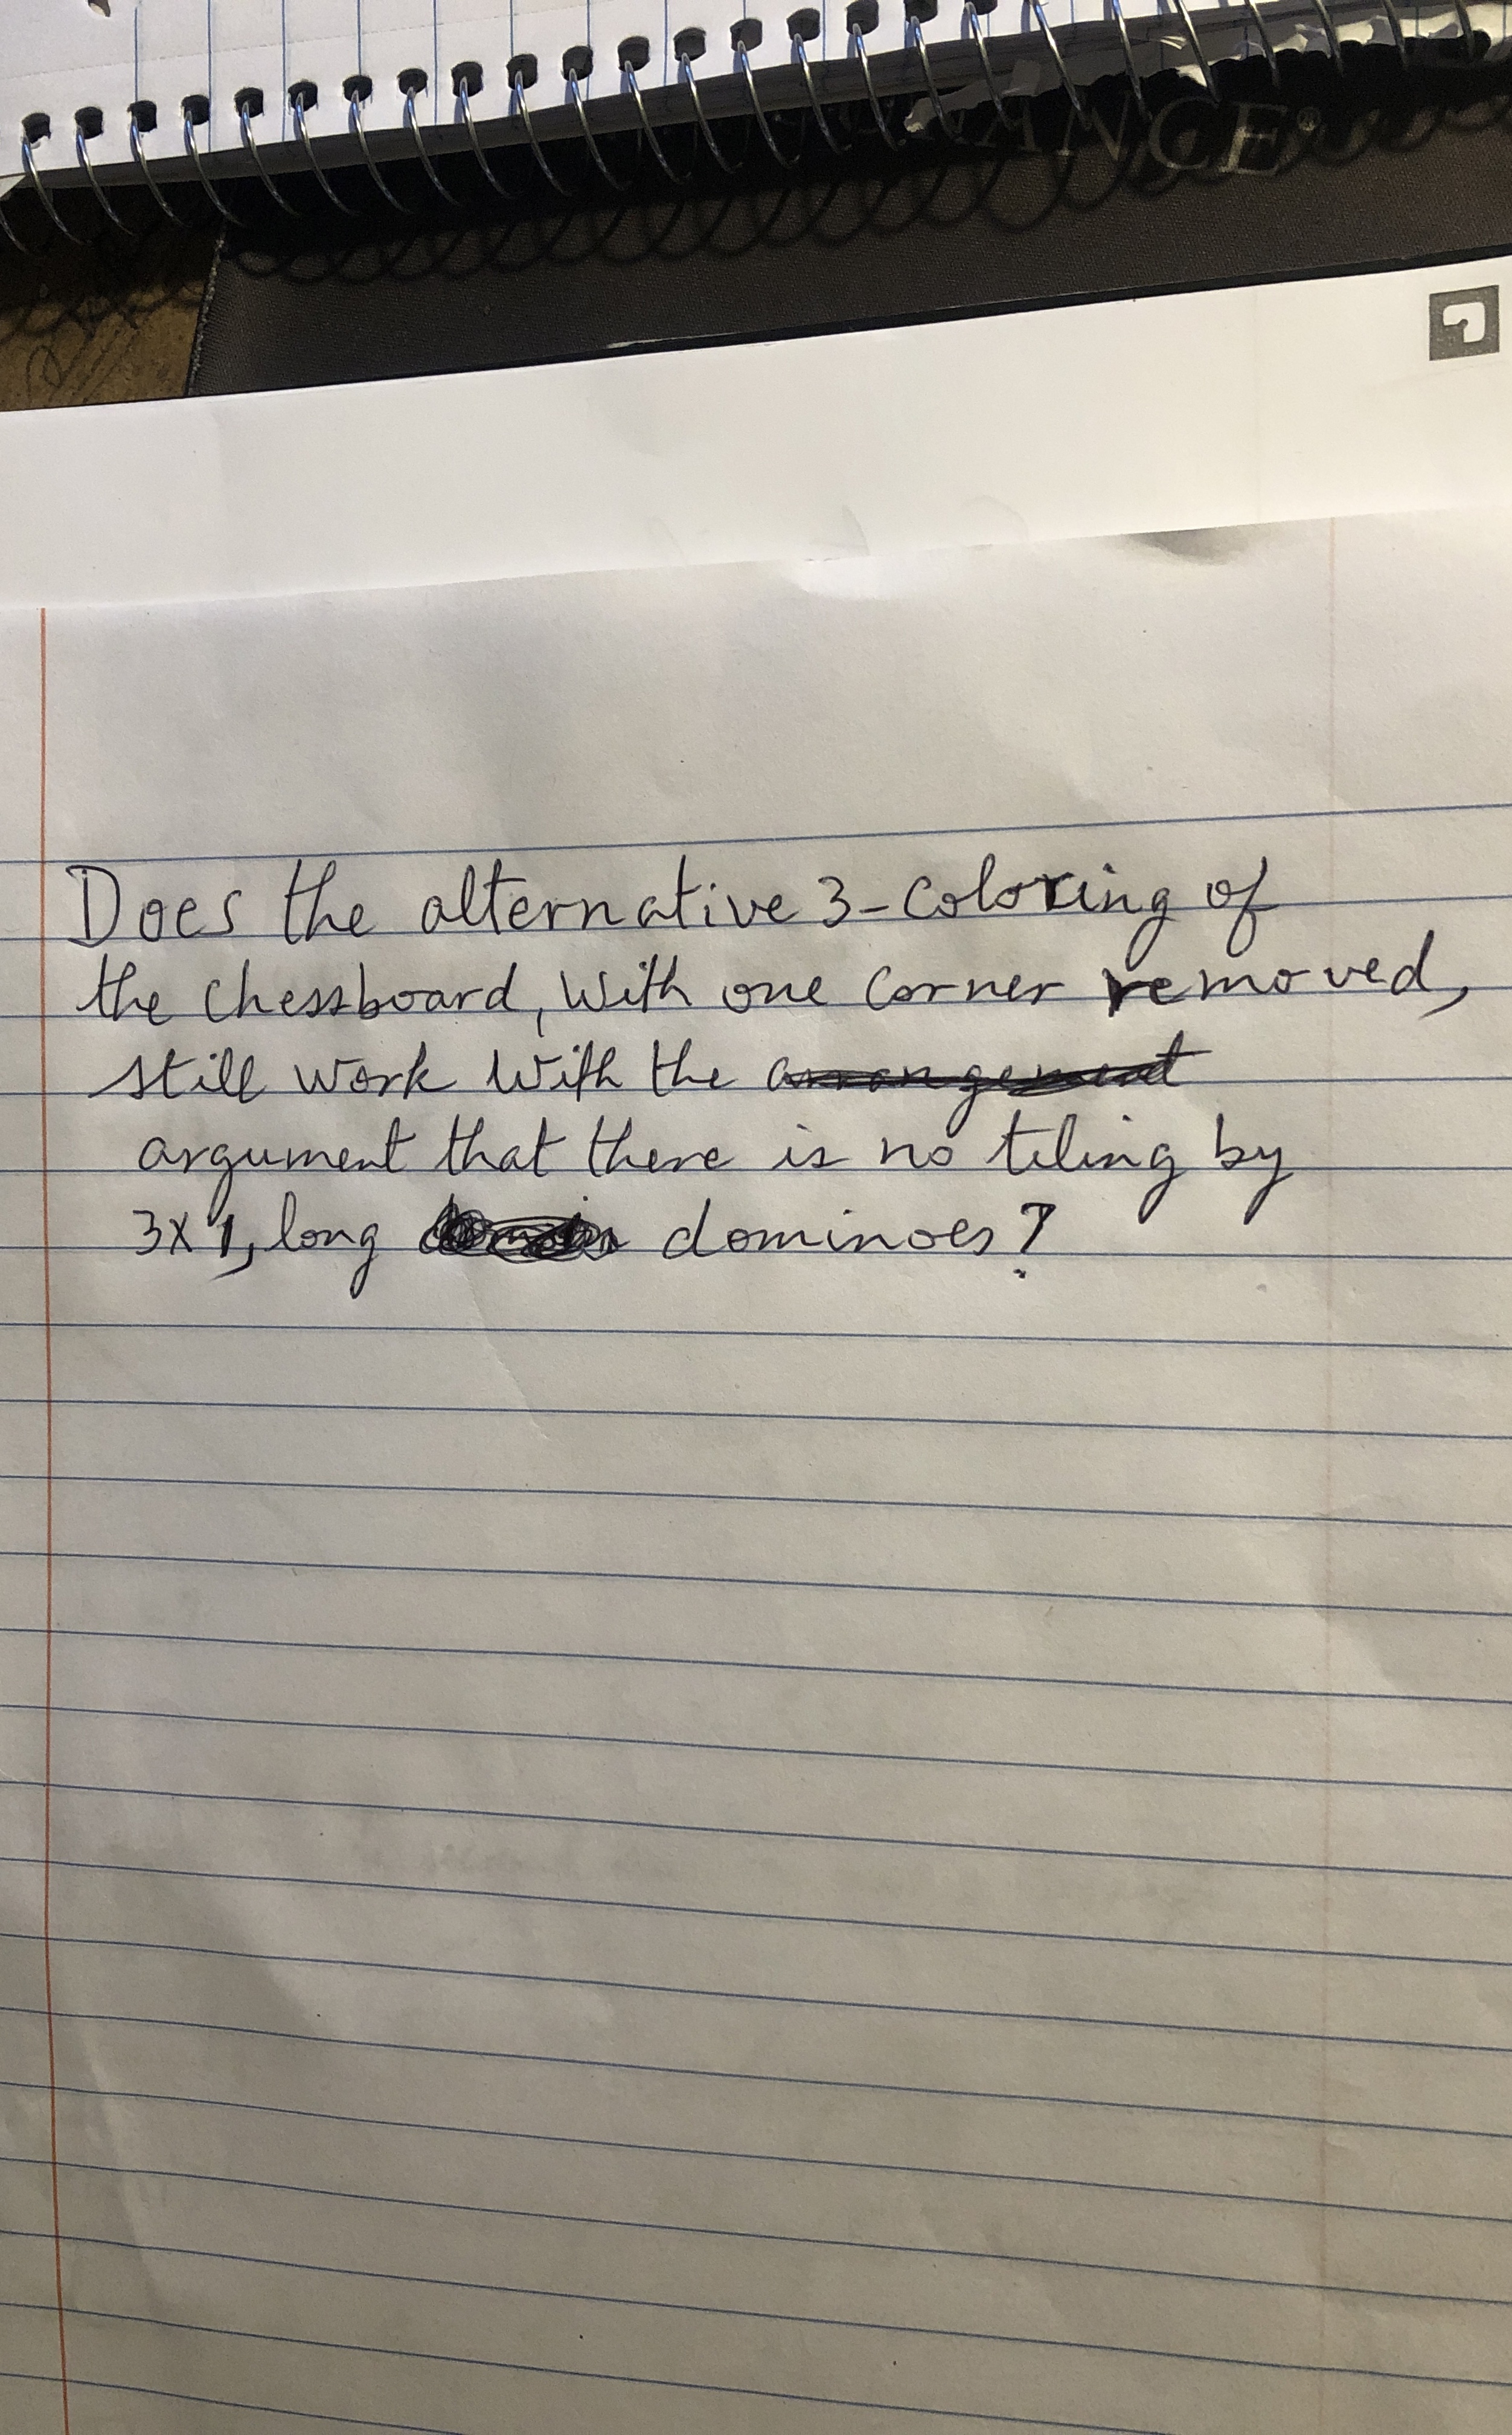 ANCE®
Does the alternative 3-coloring of
the chessboard, with one corner removed,
still work with the arrangement
argument that there is no tiling by
3x1, long dominoes?